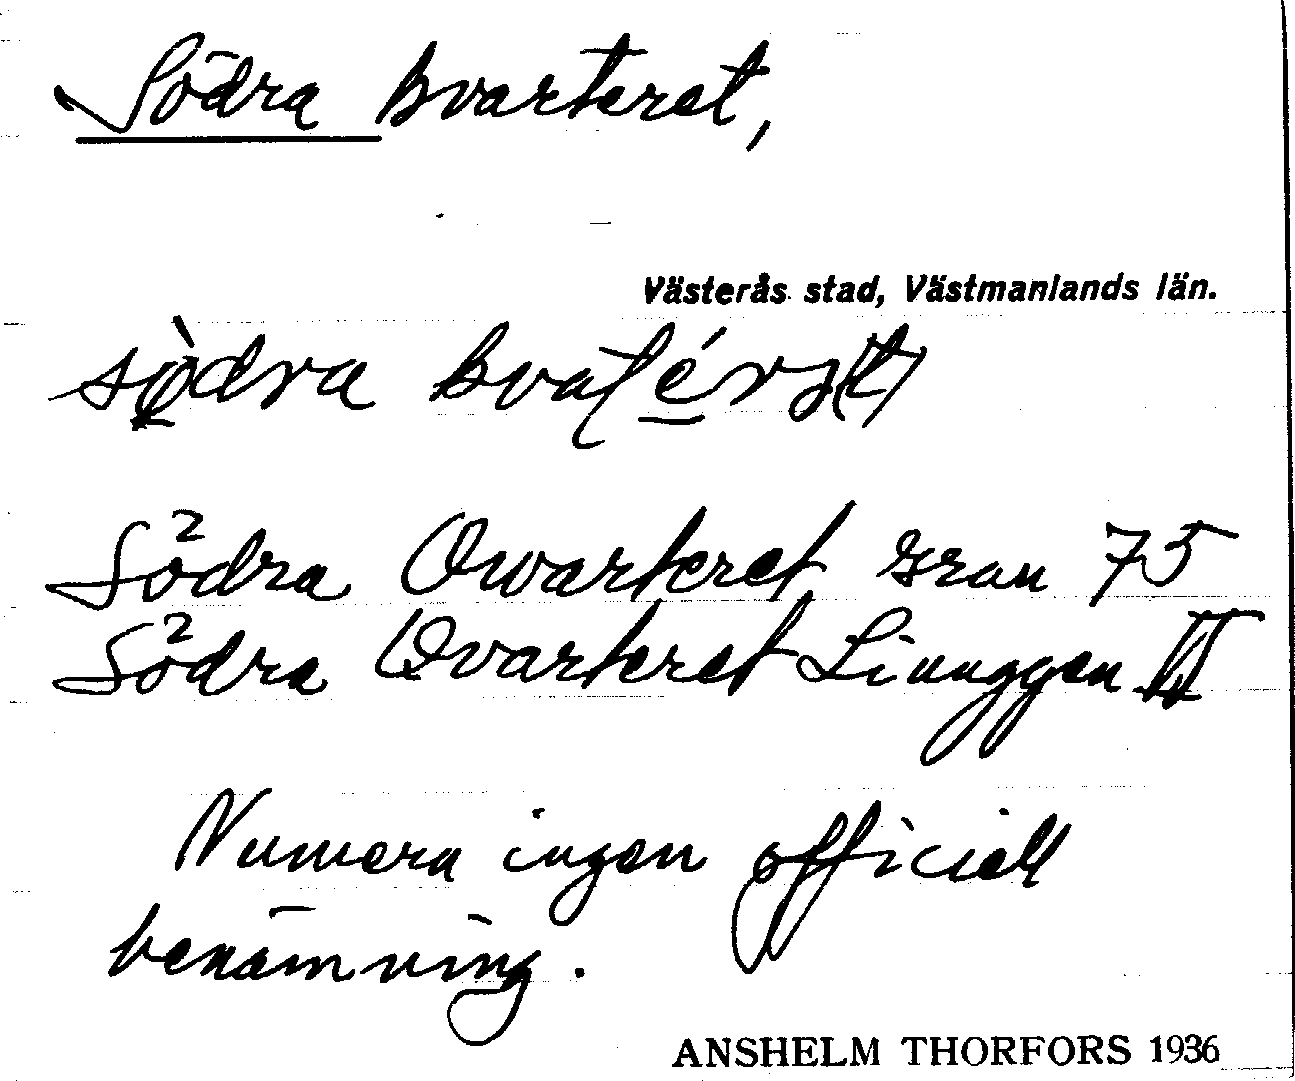 Södra kvarteret,
Västerås stad, Västmanlands län.
Södra Qwarteret Gran 75
Södra Qvarteret Linuggen II
Numera ingen officiell
benämning.
ANSHELM THORFORS 1936